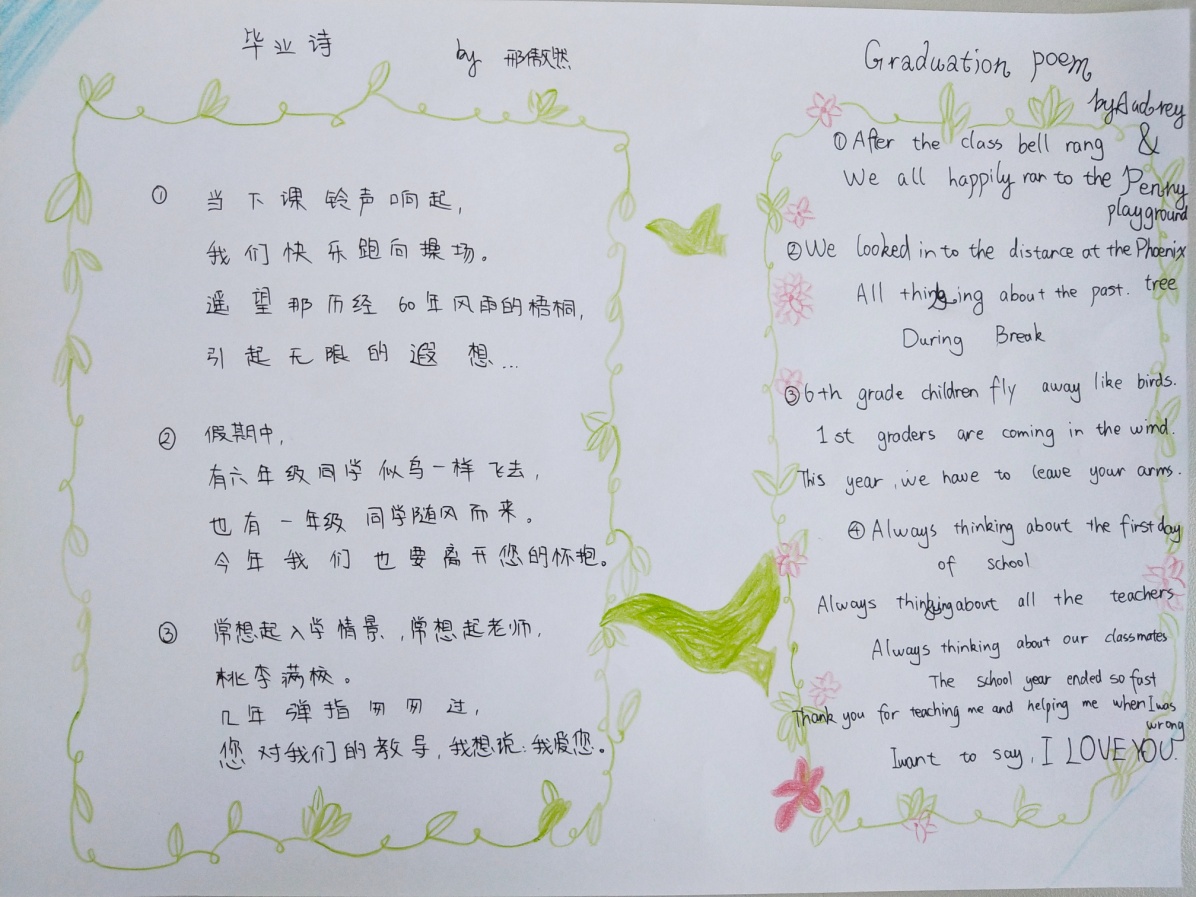 毕业诗 by 邢傲然
① 当下课铃声响起,
我们快乐跑向操场。
遥望那历经60年风雨的梧桐,
引起无限的遐想...
② 假期中,
有六年级同学似鸟一样飞去,
也有一年级同学随风而来。
今年我们也要离开您的怀抱。
③ 常想起入学情景,常想起老师,
桃李满校。
几年弹指匆匆过,
您对我们的教导,我想说:我爱您。
Graduation poem
by Audrey
&
Penny
① After the class bell rang
We all happily ran to the
playground
② We looked in to the distance at the Phoenix
tree
All thinking about the past.
During Break
③ 6th grade children fly away like birds.
1st graders are coming in the wind.
This year, we have to leave your arms.
④ Always thinking about the first day
of school
Always thinking about all the teachers
Always thinking about our classmates
The school year ended so fast
Thank you for teaching me and helping me when I was
wrong
I want to say, I LOVE YOU.